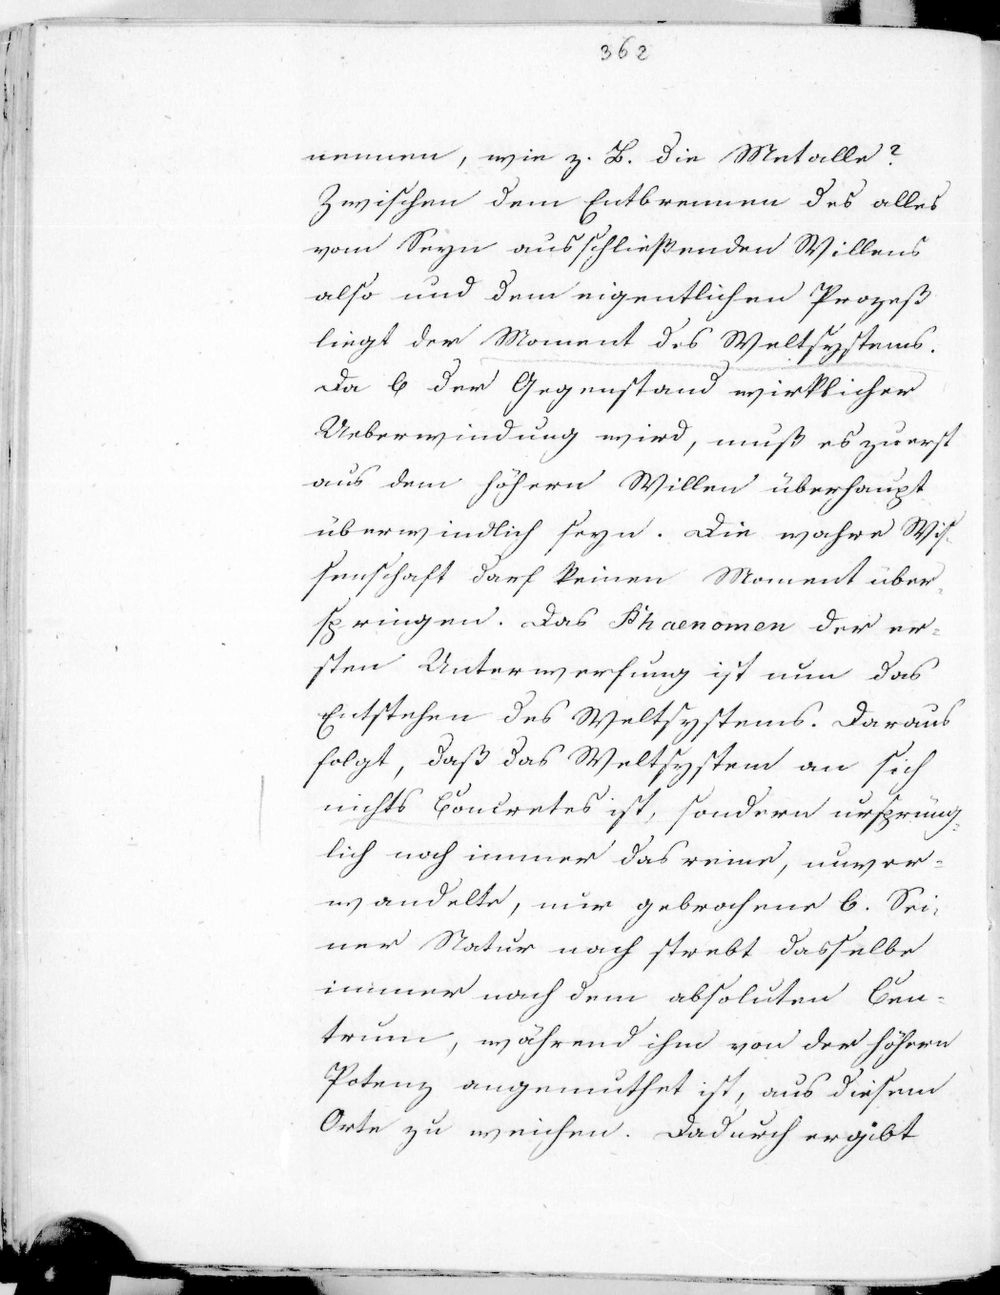 362
nennen, wie z. B. die Metalle?
Zwischen dem Entbrennen des alles
vom Seyn ausschließenden Willens
also und dem eigentlichen Prozeß
liegt der Moment des Weltsystems.
Da b der Gegenstand wirklicher
Ueberwindung wird, muß es zuerst
aus dem höhern Willen überhaupt
überwindlich seyn. Die wahre Wis-
senschaft darf keinen Moment über-
springen. Das Phaenomen der er-
sten Unterwerfung ist nun das
Entstehen des Weltsystems. Daraus
folgt, daß das Weltsystem an sich
nichts Concretes ist, sondern ursprüng-
lich noch immer das reine, unver-
wandelte, nur gebrochene b. Sei-
ner Natur nach strebt dasselbe
immer nach dem absoluten Cen-
trum, während ihm von der höhern
Potenz angemuthet ist, aus diesem
Orte zu weichen. Dadurch ergibt